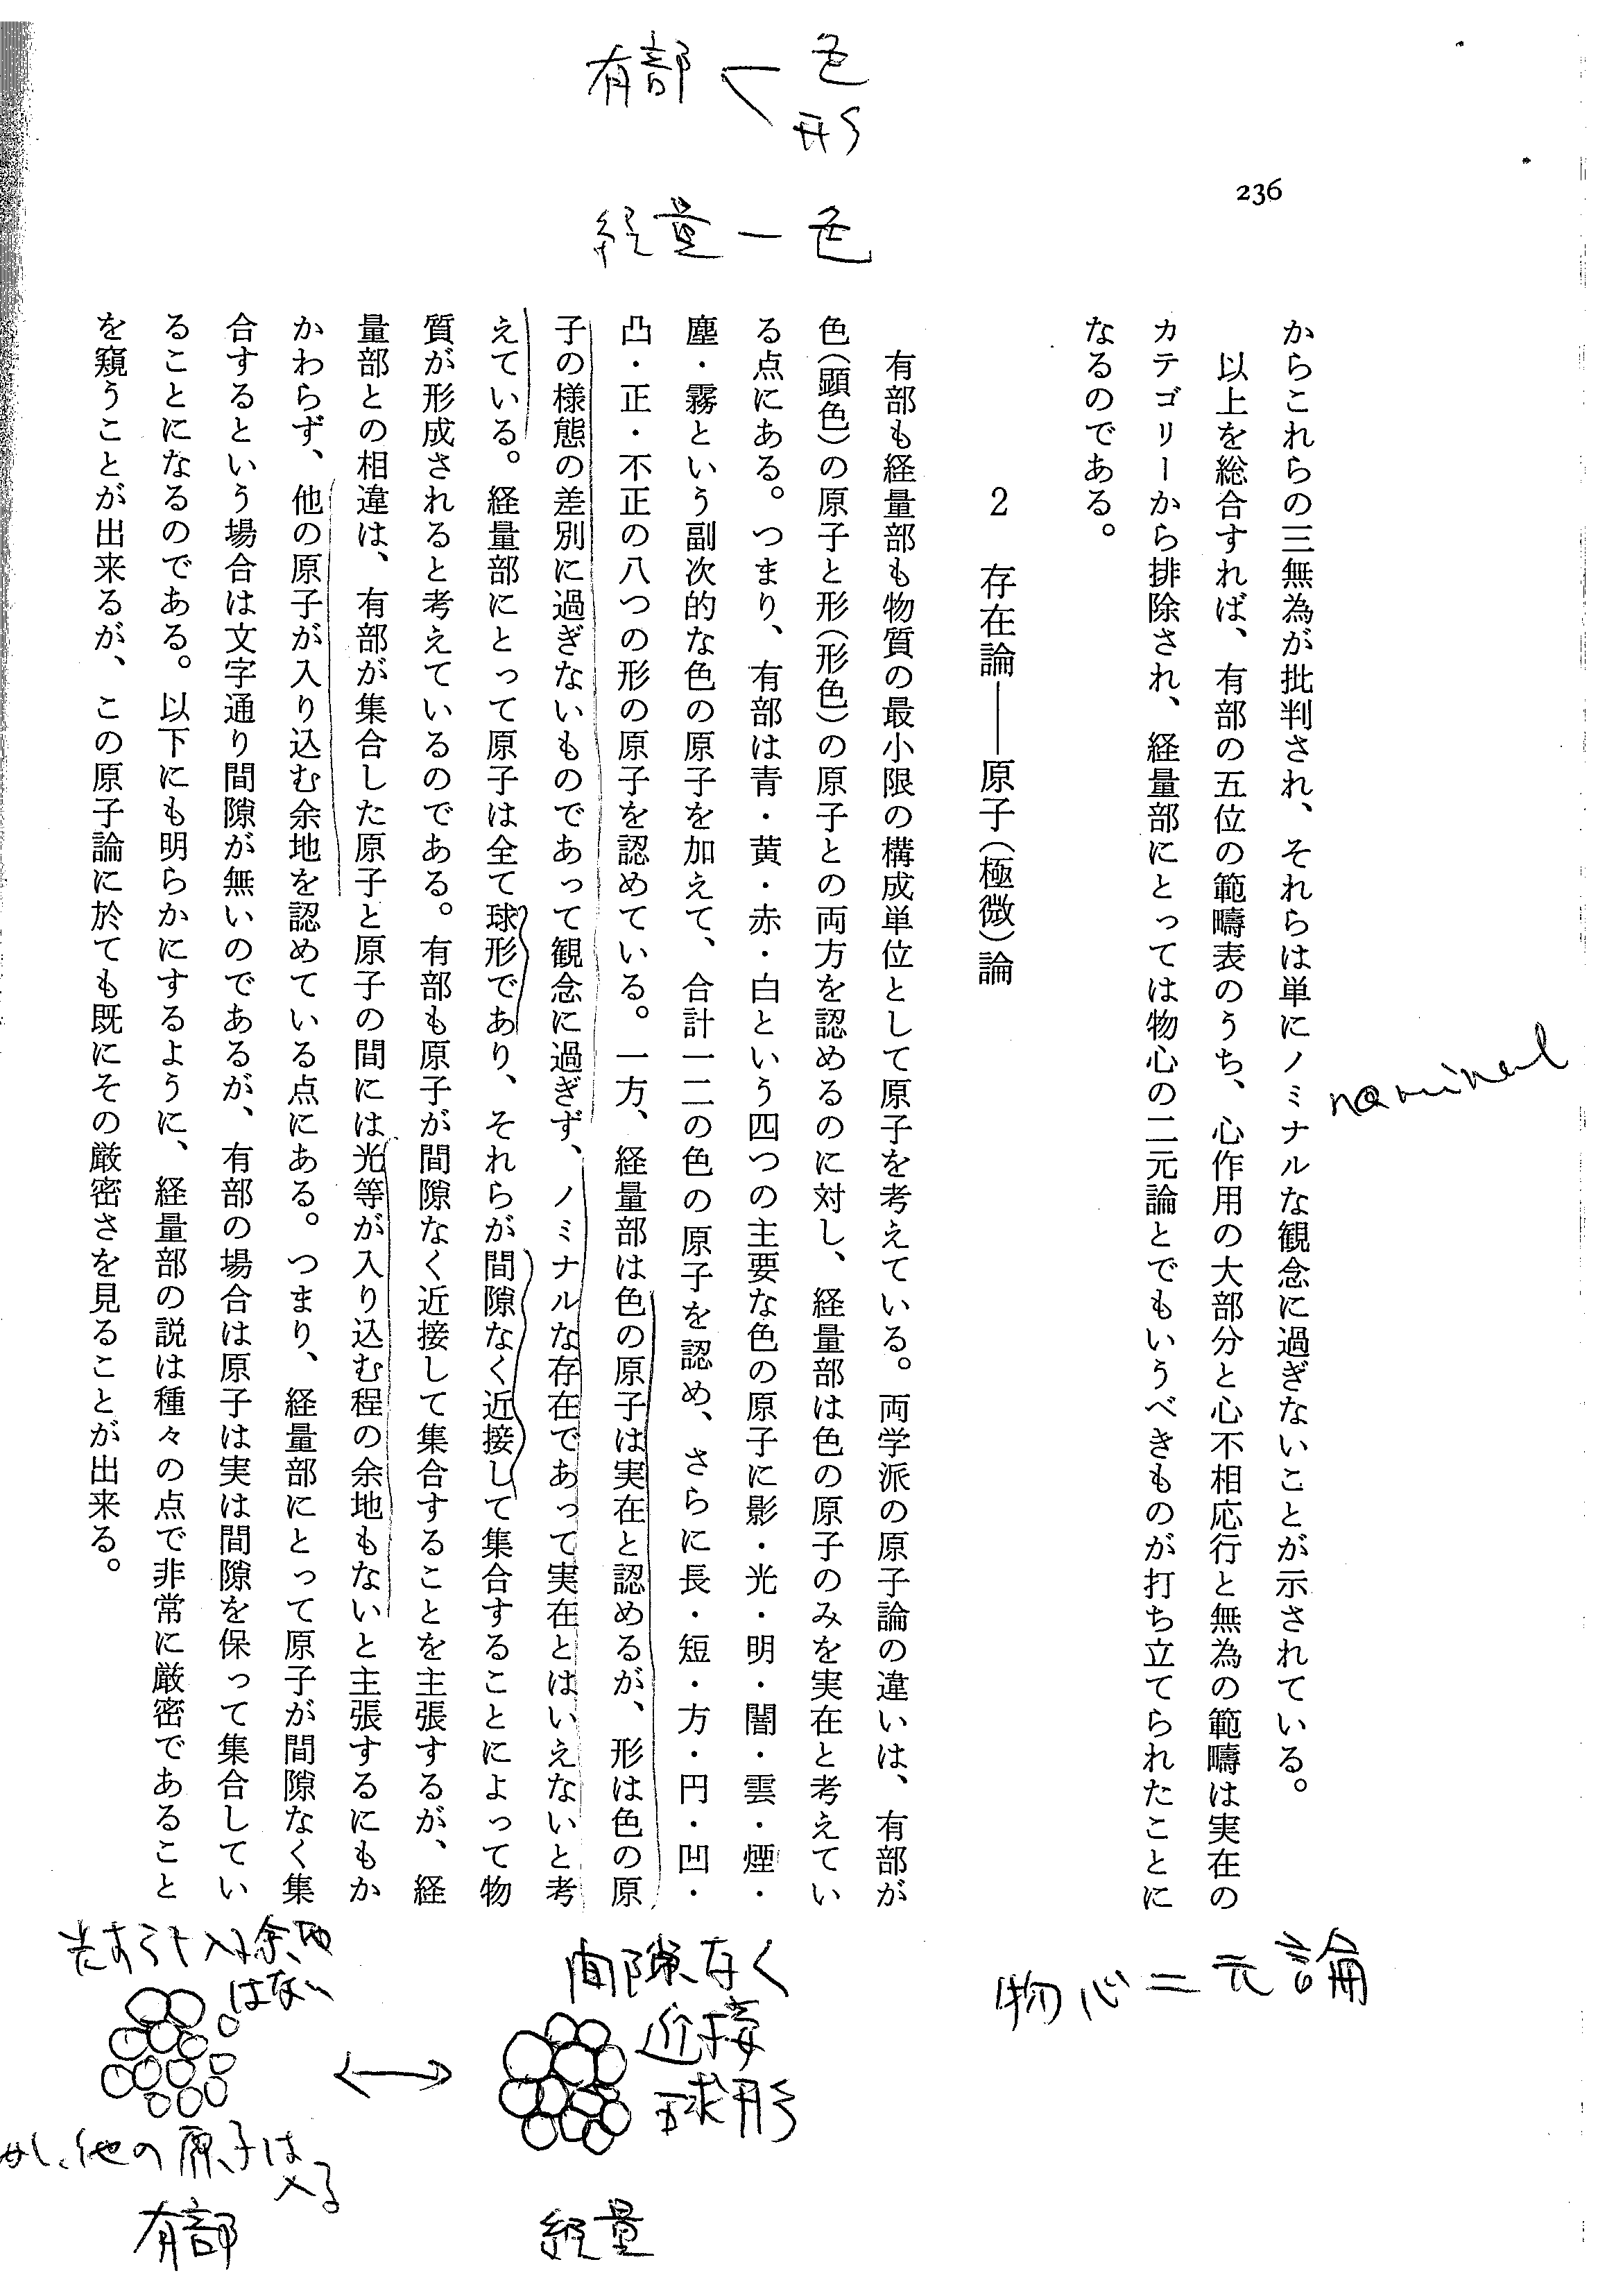 有部 色
形
経量ー色
236
からこれらの三無為が批判され、それらは単にノミナルな観念に過ぎないことが示されている。
以上を総合すれば、有部の五位の範疇表のうち、心作用の大部分と心不相応行と無為の範疇は実在の
カテゴリーから排除され、経量部にとっては物心の二元論とでもいうべきものが打ち立てられたことに
なるのである。
nominal
2 存在論──原子(極微)論
有部も経量部も物質の最小限の構成単位として原子を考えている。両学派の原子論の違いは、有部が
色(顕色)の原子と形(形色)の原子との両方を認めるのに対し、経量部は色の原子のみを実在と考えてい
る点にある。つまり、有部は青・黄・赤・白という四つの主要な色の原子に影・光・明・闇・雲・煙・
塵・霧という副次的な色の原子を加えて、合計一二の色の原子を認め、さらに長・短・方・円・凹・
凸・正・不正の八つの形の原子を認めている。一方、経量部は色の原子は実在と認めるが、形は色の原
子の様態の差別に過ぎないものであって観念に過ぎず、ノミナルな存在であって実在とはいえないと考
えている。経量部にとって原子は全て球形であり、それらが間隙なく近接して集合することによって物
質が形成されると考えているのである。有部も原子が間隙なく近接して集合することを主張するが、経
量部との相違は、有部が集合した原子と原子の間には光等が入り込む程の余地もないと主張するにもか
かわらず、他の原子が入り込む余地を認めている点にある。つまり、経量部にとって原子が間隙なく集
合するという場合は文字通り間隙が無いのであるが、有部の場合は原子は実は間隙を保って集合してい
ることになるのである。以下にも明らかにするように、経量部の説は種々の点で非常に厳密であること
を窺うことが出来るが、この原子論に於ても既にその厳密さを見ることが出来る。
物心二元論
間隙なく
近接
球形
経量
光すらも入る余地
はない
しかし、他の原子は
入る
有部